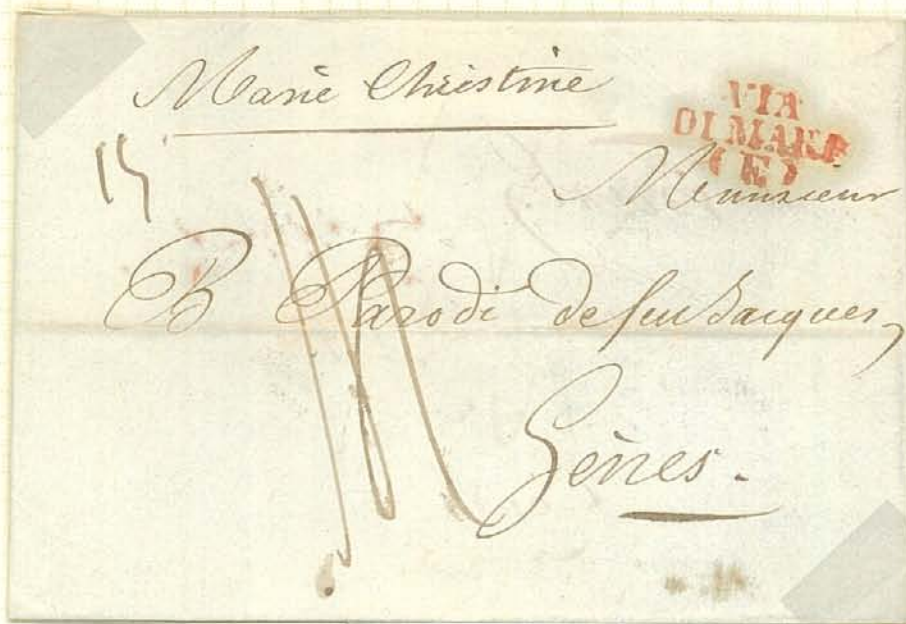 Marie Christine
VIA
DI MARE
(E)
15
Monsieur
B Parodi de feu Jacques,
Gênes.